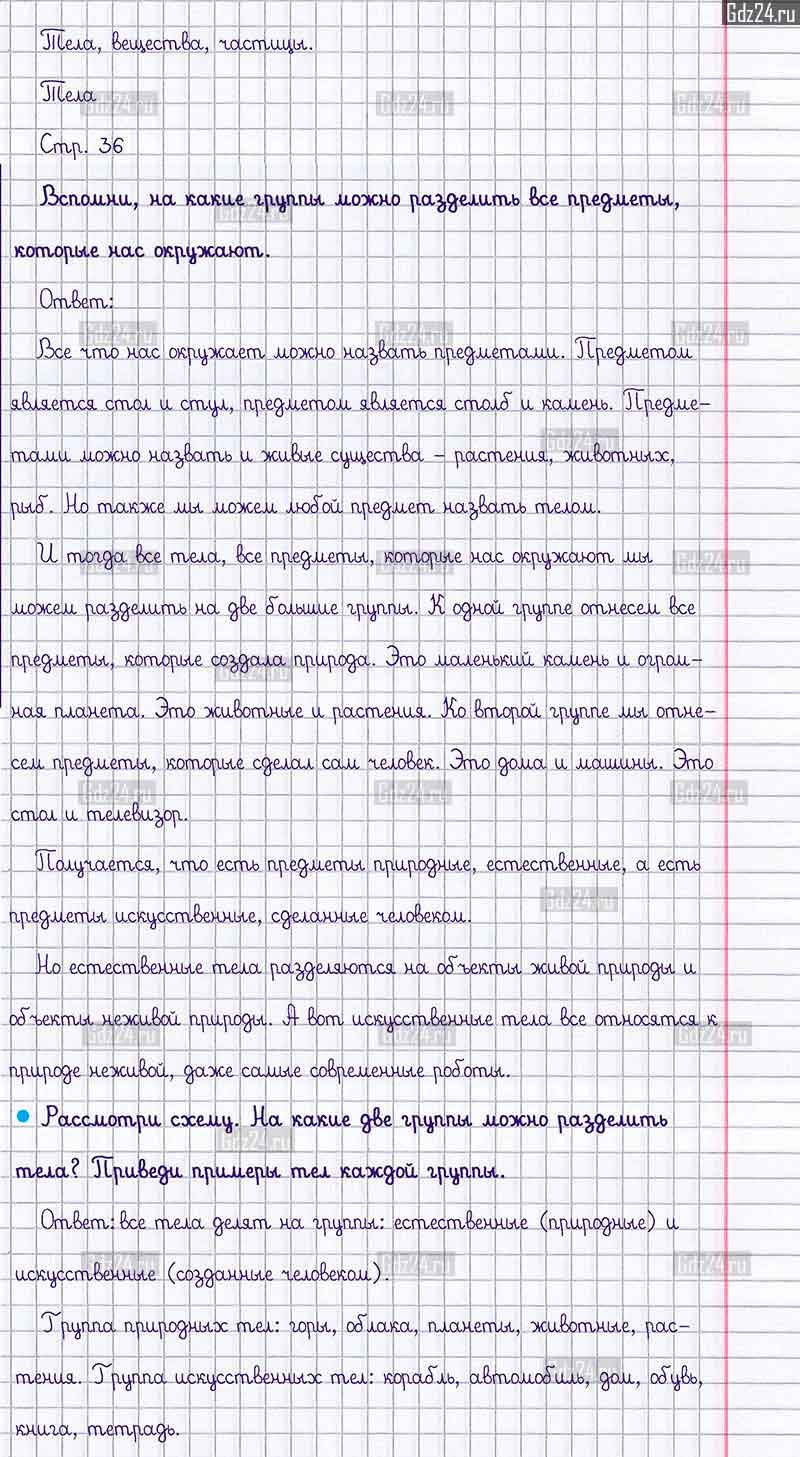 Gdz24.ru
Тела, вещества, частицы.
Тела
Стр. 36
Вспомни, на какие группы можно разделить все предметы,
которые нас окружают.
Ответ:
Все что нас окружает можно назвать предметами. Предметом
является стол и стул, предметом является столб и камень. Предме-
тами можно назвать и живые существа – растения, животных,
рыб. Но также мы можем любой предмет назвать телом.
И тогда все тела, все предметы, которые нас окружают мы
можем разделить на две большие группы. К одной группе отнесем все
предметы, которые создала природа. Это маленький камень и огром-
ная планета. Это животные и растения. Ко второй группе мы отне-
сем предметы, которые сделал сам человек. Это дома и машины. Это
стол и телевизор.
Получается, что есть предметы природные, естественные, а есть
предметы искусственные, сделанные человеком.
Но естественные тела разделяются на объекты живой природы и
объекты неживой природы. А вот искусственные тела все относятся к
природе неживой, даже самые современные роботы.
Рассмотри схему. На какие две группы можно разделить
тела? Приведи примеры тел каждой группы.
Ответ: все тела делят на группы: естественные (природные) и
искусственные (созданные человеком).
Группа природных тел: горы, облака, планеты, животные, рас-
тения. Группа искусственных тел: корабль, автомобиль, дом, обувь,
книга, тетрадь.